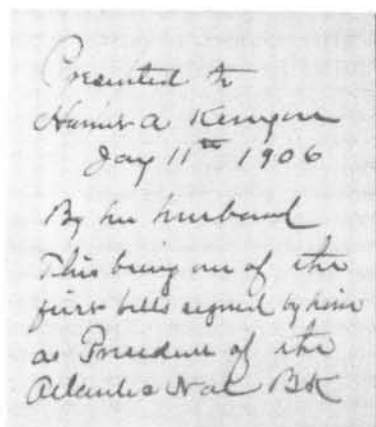 Presented to
Harriet A Kenyon
Jay 11th 1906
By her husband
This being one of the
first bills signed by him
as President of the
Atlantic Nat Bk